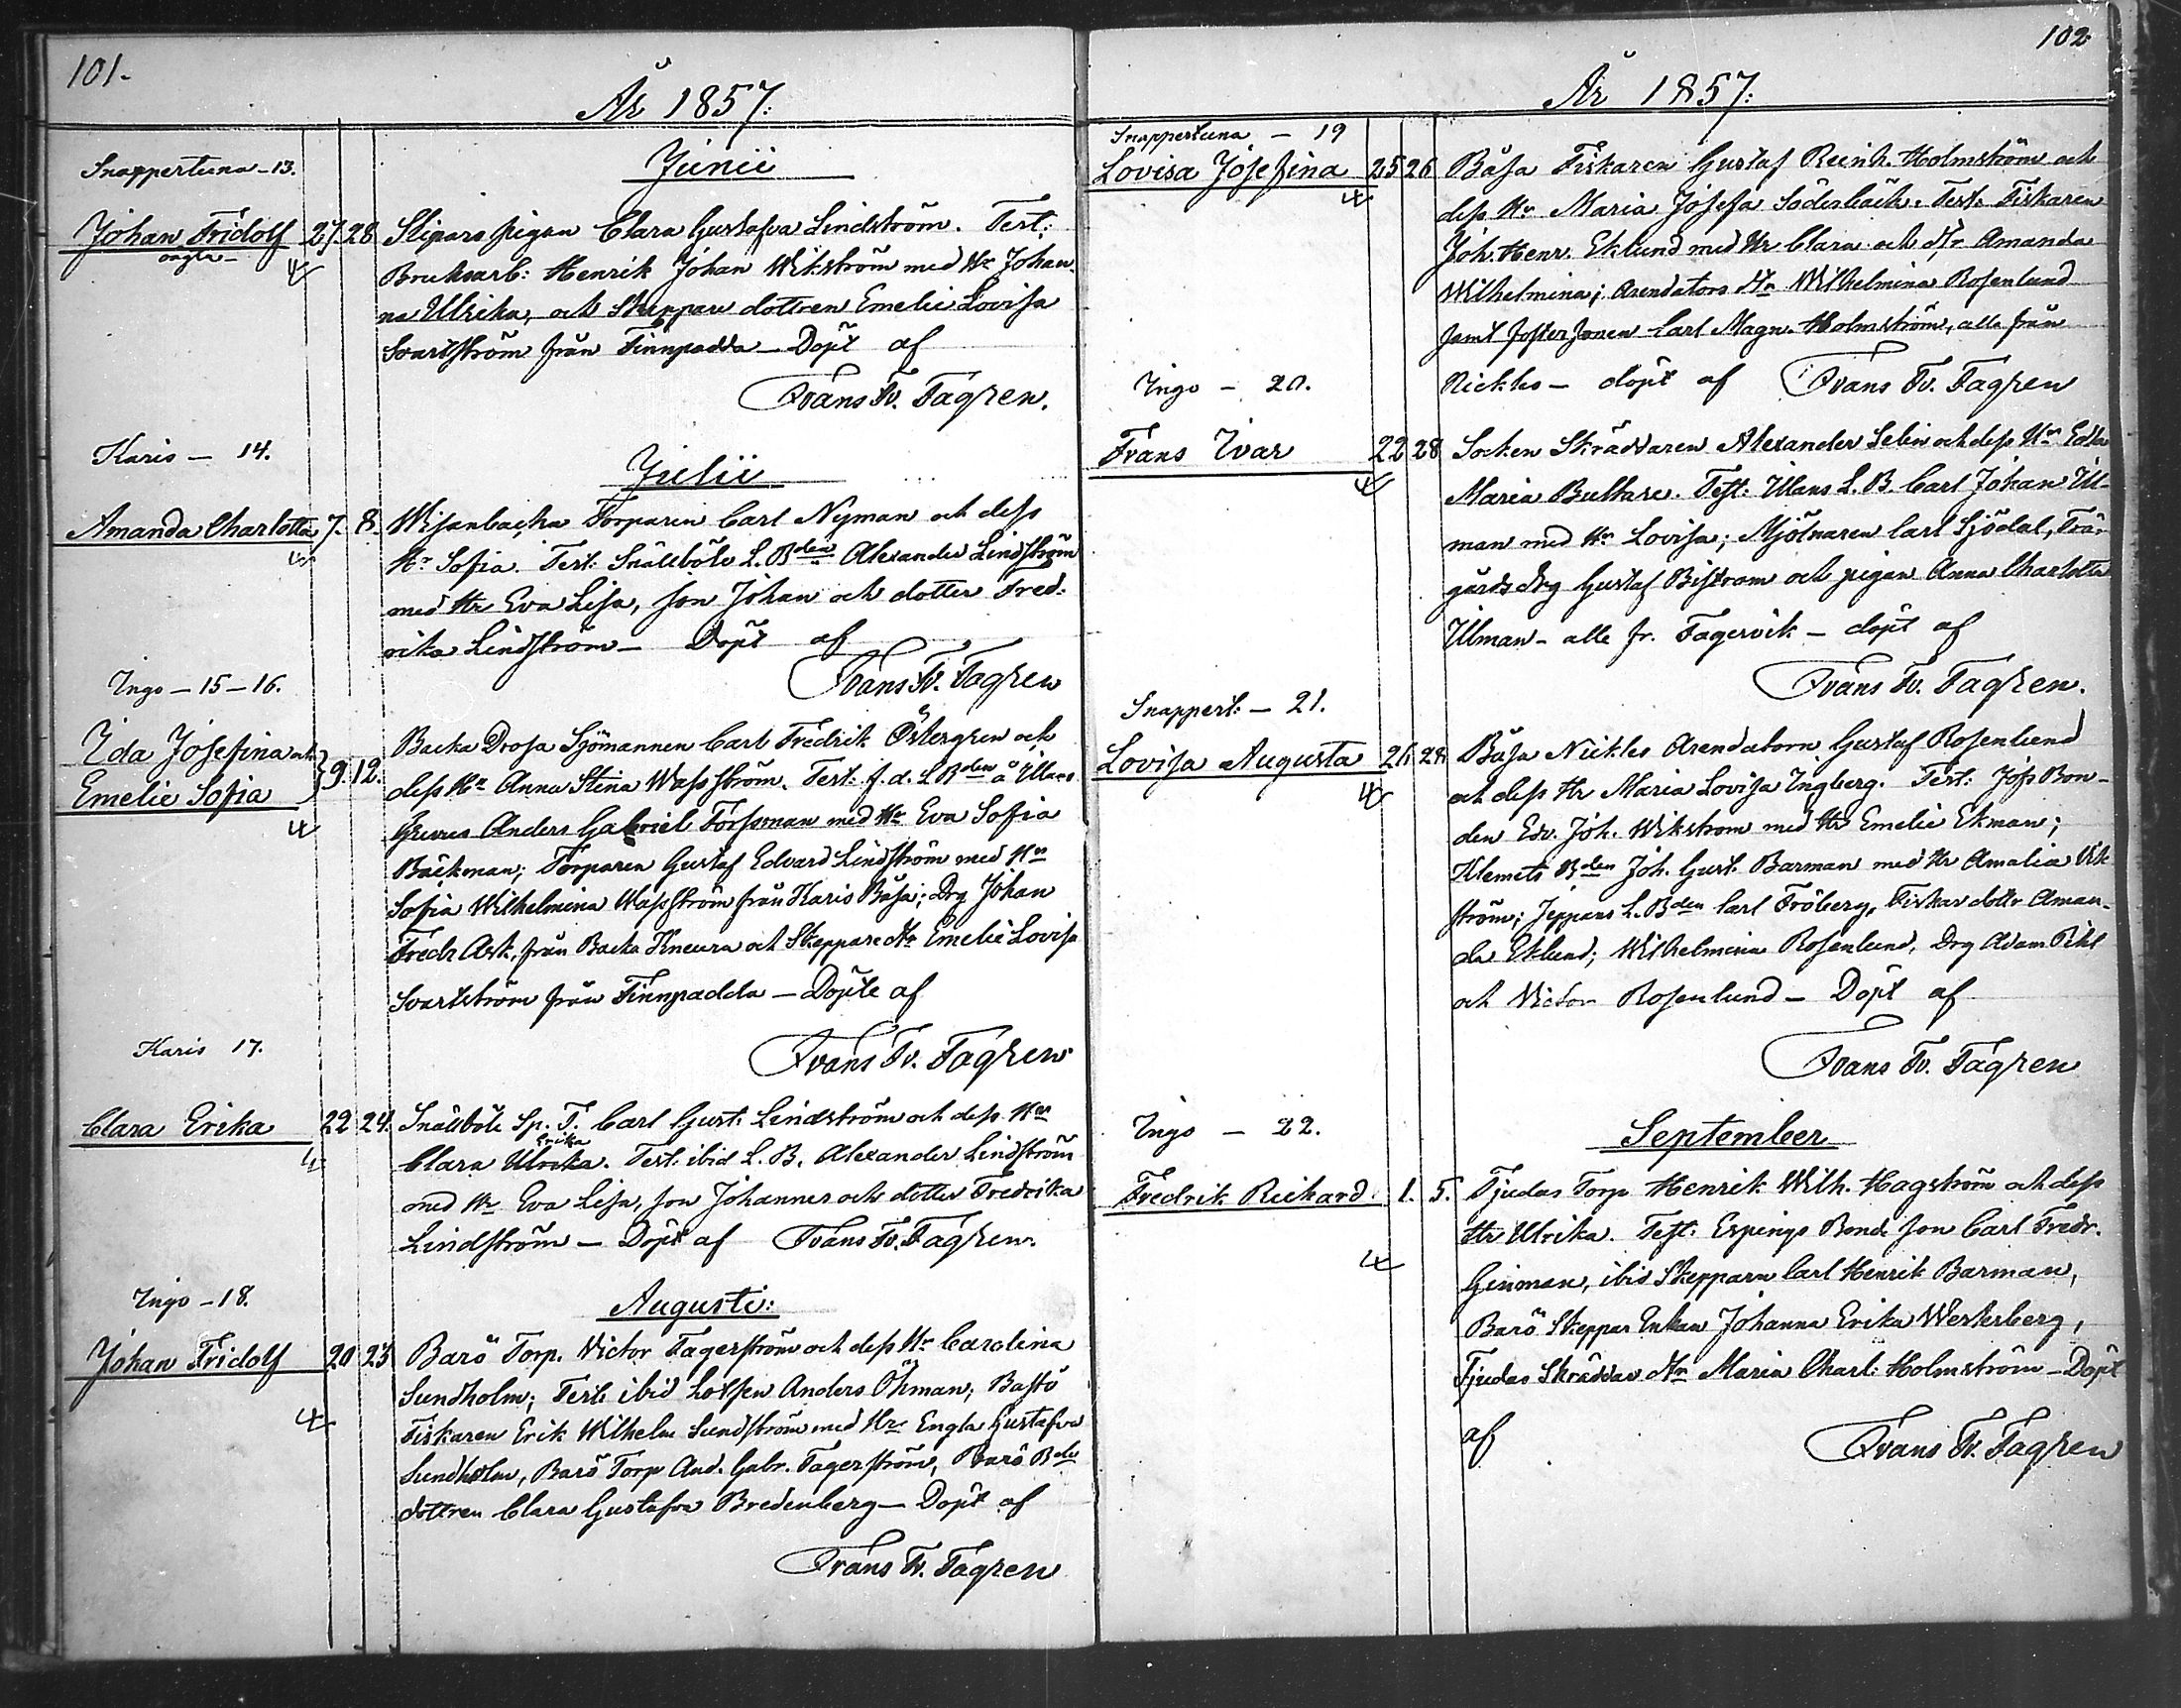 101.
År 1857:
Snappertuna - 13.
Junii
Johan Fridolf 27. 28 Slipars pigan Clara Gustafva Lindström. Test:
oägta - Bruksarb: Henrik Johan Wikström med Hr Johan-
na Ulrika, och Skeppare dottren Emelie Lovisa
Svartström från Finnpadda - Döpt af
Frans Fr. Fagren.
Karis - 14.
Julii
Amanda Charlotta 7. 8. Torparen Carl Nyman och dess
Hr Sofia. Test: Snällböle L. Bden Alexander Lindström
med Hr Eva Lisa, son Johan och dotter Fred-
rika Lindström - Döpt af
Frans Fr. Fagren
Ingo - 15 - 16.
Ida Josefina och Backa Drosa Sjömannen Carl Fredrik Östergren och
Emelie Sofia } 9. 12. dess Hr Anna Stina Wassström. Test. f.d. L Bden å
Anders Gabriel Forssman med Hr Eva Sofia
Bäckman; Torparen Gustaf Edvard Lindström med Hr
Sofia Wilhelmina Wassström från Karis Båsa; Drg Johan
Fredr Ask, från Backa Kneura och Skeppare Hr Emelie Lovisa
Svartström från Finnpadda - Döpte af
Frans Fr. Fagren
Karis 17.
Clara Erika 22 24. Snällböle Sp. T. Carl Gust. Lindström och dess Hr
Erika
Clara Ulrika. Test. ibid L. B. Alexander Lindström
med Hr Eva Lisa, son Johannes och dotter Fredrika
Lindström - Döpt af Frans Fr. Fagren.
Ingo - 18.
Augusti:
Johan Fridolf 20 23 Barö Torp. Victor Fagerström och dess Hr Carolina
Sundholm; Test: ibid Lotsen Anders Öhman; Bastö
Fiskaren Erik Wilhelm Sundström med Hr Engla Gustafva
Sundholm, Barö Torp And. Gabr. Fagerström, Barö Bde
dottren Clara Gustafva Bredenberg - Döpt af
Frans Fr. Fagren
102
År 1857:
Snappertuna - 19
Lovisa Josefina 25 26 Båsa Fiskaren Gustaf Reinh. Holmström och
dess Hr Maria Josefa Söderbäck. Test: Fiskaren
Joh. Henr. Eklund med Hr Clara och Hr Amanda
Wilhelmina; Arendators Hr Wilhelmina Rosenlund
samt fostersonen Carl Magn. Holmström, alla från
Nickles - döpt af Frans Fr. Fagren
Ingo - 20.
Frans Ivar 22 28 Socken Skräddaren Alexander Selin och dess Hr Edla
Maria Bultare. Test: Ulans L. B. Carl Johan Ul-
man med Hr Lovisa; Mjölnaren Carl Sjödal, Trä-
gårds drg Gustaf Biström och pigan Anna Charlotta
Ulman - alle fr. Fagervik - döpt af
Frans Fr. Fagren.
Snappert: - 21.
Lovisa Augusta 26 28 Båsa Nickles Arendatorn Gustaf Rosenlund
och dess Hr Maria Lovisa Ingberg. Test: Joss Bon-
den Edv. Joh. Wikström med Hr Emelie Ekman;
Klemets Bden Joh. Gust. Barman med Hr Amalia Vik-
ström; Jeppars L. Bden Carl Fröberg, Fiskar dottr Aman-
da Eklund; Wilhelmina Rosenlund, Drg Adam Pihl
och Victor Rosenlund - Döpt af
Frans Fr. Fagren
Ingo - 22.
September
Fredrik Rickard 1. 5. Fjudas Torp Henrik Wilh. Hagström och dess
Hr Ulrika. Test: Espings Bonde son Carl Fredr.
Ginman, ibid Skepparn Carl Henrik Barman,
Barö Skeppar Enkan Johanna Erika Westerberg,
Fjudas Skräddar Hr Maria Charl: Holmström - Döpt
af Frans Fr. Fagren